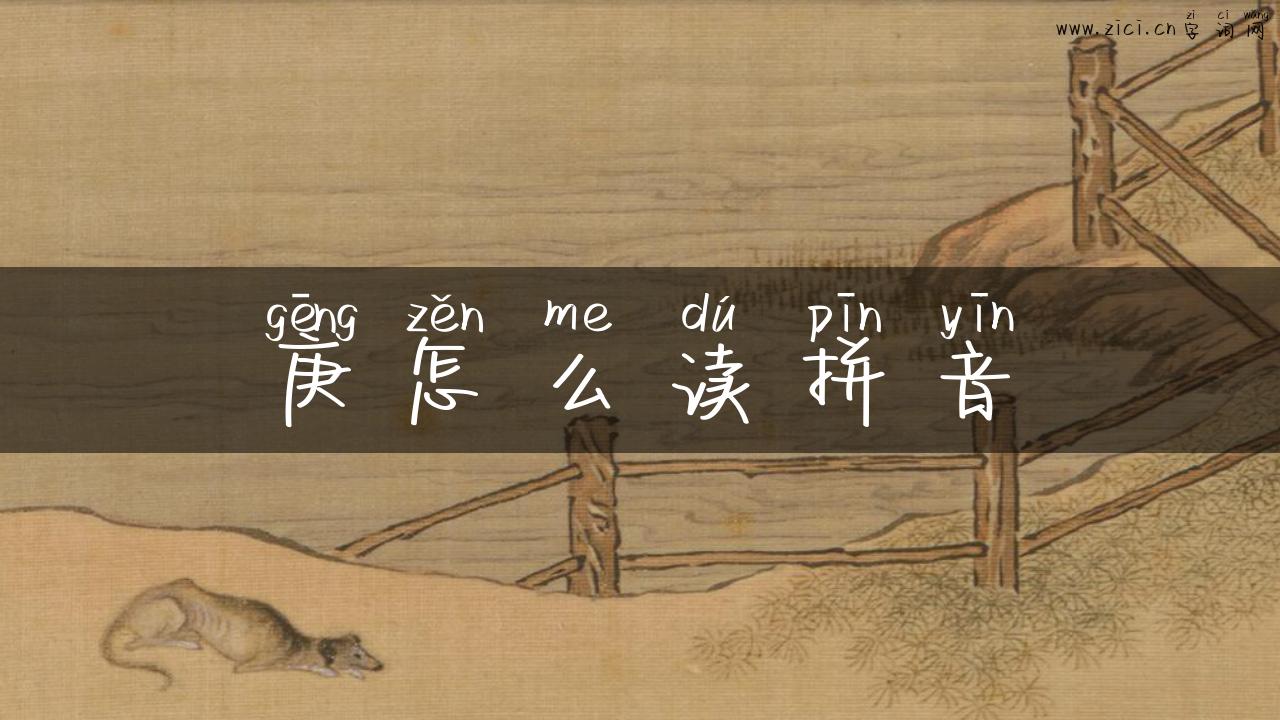 zi ci wang
www.zici.cn 字词网
gēng zěn me dú pīn yīn
庚怎么读拼音